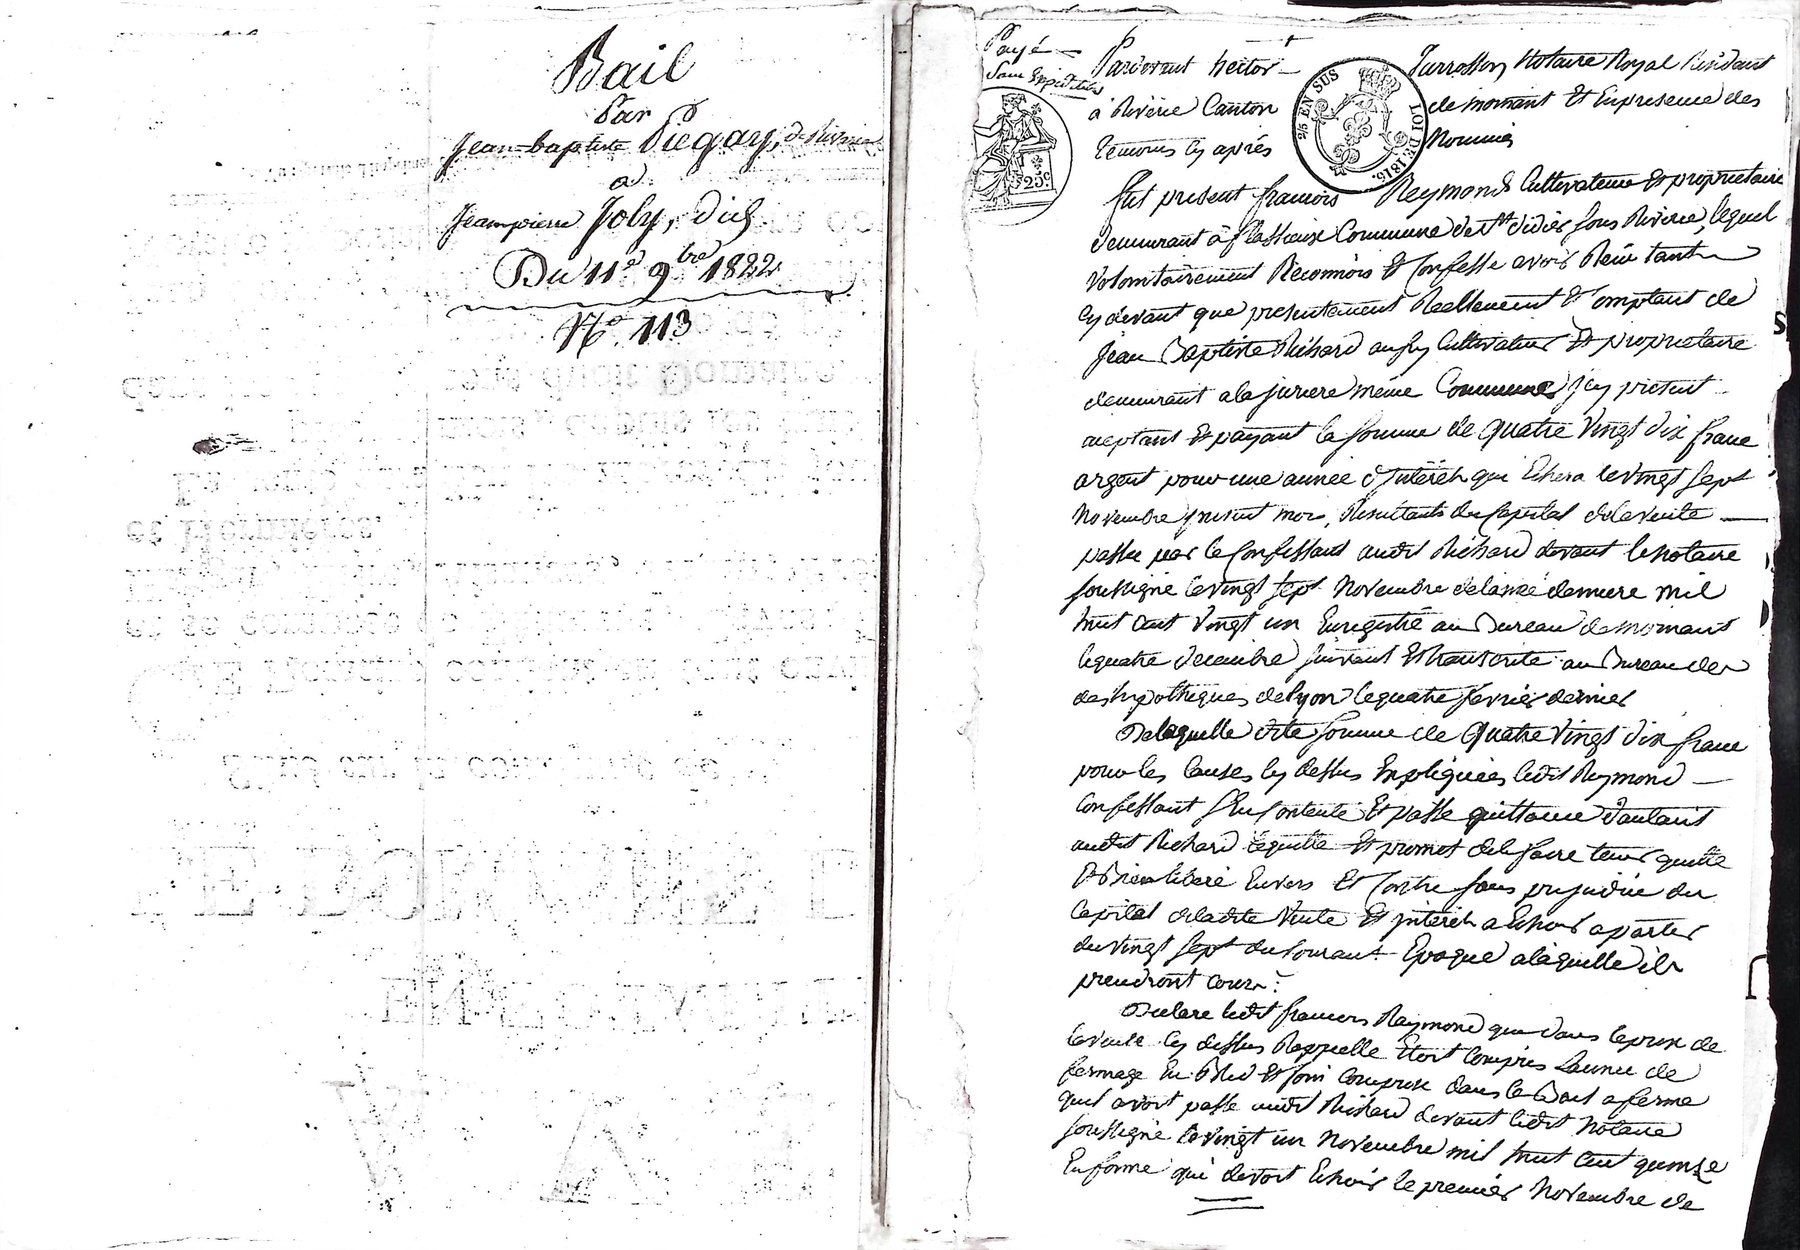 Bail
Par
Jean-baptiste Piégay, de Riverie
à
Jeanpierre Joly, dud.
Du 11e 9bre 1822
No. 113
Payé
Sans Expédition
25c
2/5 EN SUS
LOI DE 1816.
Pardevant hector Jurrosson Notaire Royal Résidant
à Riverie Canton de mornant Et En presence des
temoins cy après Nommés
fut present francois Reymond Cultivateur Et proprietaire
demeurant à Commune de St didier sous Riverie, lequel
volontairement Reconnois Et Confesse avoir Reçu tant
cy devant que presentement Reellement Et Comptant de
jean Baptiste Richard aussy Cultivateur Et proprietaire
demeurant a la même Commune jcy present
aceptant Et payant la somme de quatre vingt dix franc
argent pour une année d'Interêt qui Echera le vingt sept
Novembre present mois, Resultants du Capital de la vente
passée par le Confessant audit Richard devant le notaire
soussigné le vingt sept Novembre de lannée derniere mil
huit cent vingt un Enregistré au Bureau de mornant
le quatre decembre suivant Et transcrite au Bureau des
des hypotheques de lyon le quatre fevrier dernier
De laquelle dite somme de quatre vingt dix franc
pour les causes cy dessus Expliquées ledit Reymond
Confessant s'En Contente Et passe quittance d'autant
audit Richard Et promet de le faire tenir quitte
Et Bien liberé Envers Et Contre sans prejudice du
Capital de la dite vente Et jnterêt a Echoir a parter
du vingt sept du Courant Epoque a laquelle ils
prendront cours.
Declare ledit francois Reymond que dans le prix de
la vente cy dessus Rappellé Etoit Compris l'année de
fermage En Bled Et foin Comprise dans le Bail a ferme
quil avoit passé audit Richard devant ledit Notaire
soussigné le vingt un Novembre mil huit cent quinze
En forme qui devoit Echoir le premier Novembre de